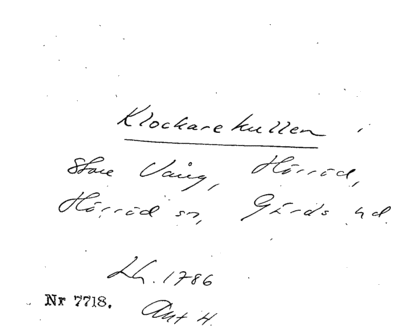 Klockarekullen i
Store Vång, Hörröd,
Hörröd sn, Gärds hd.
Lh. 1786
Nr 7718. Akt 4.